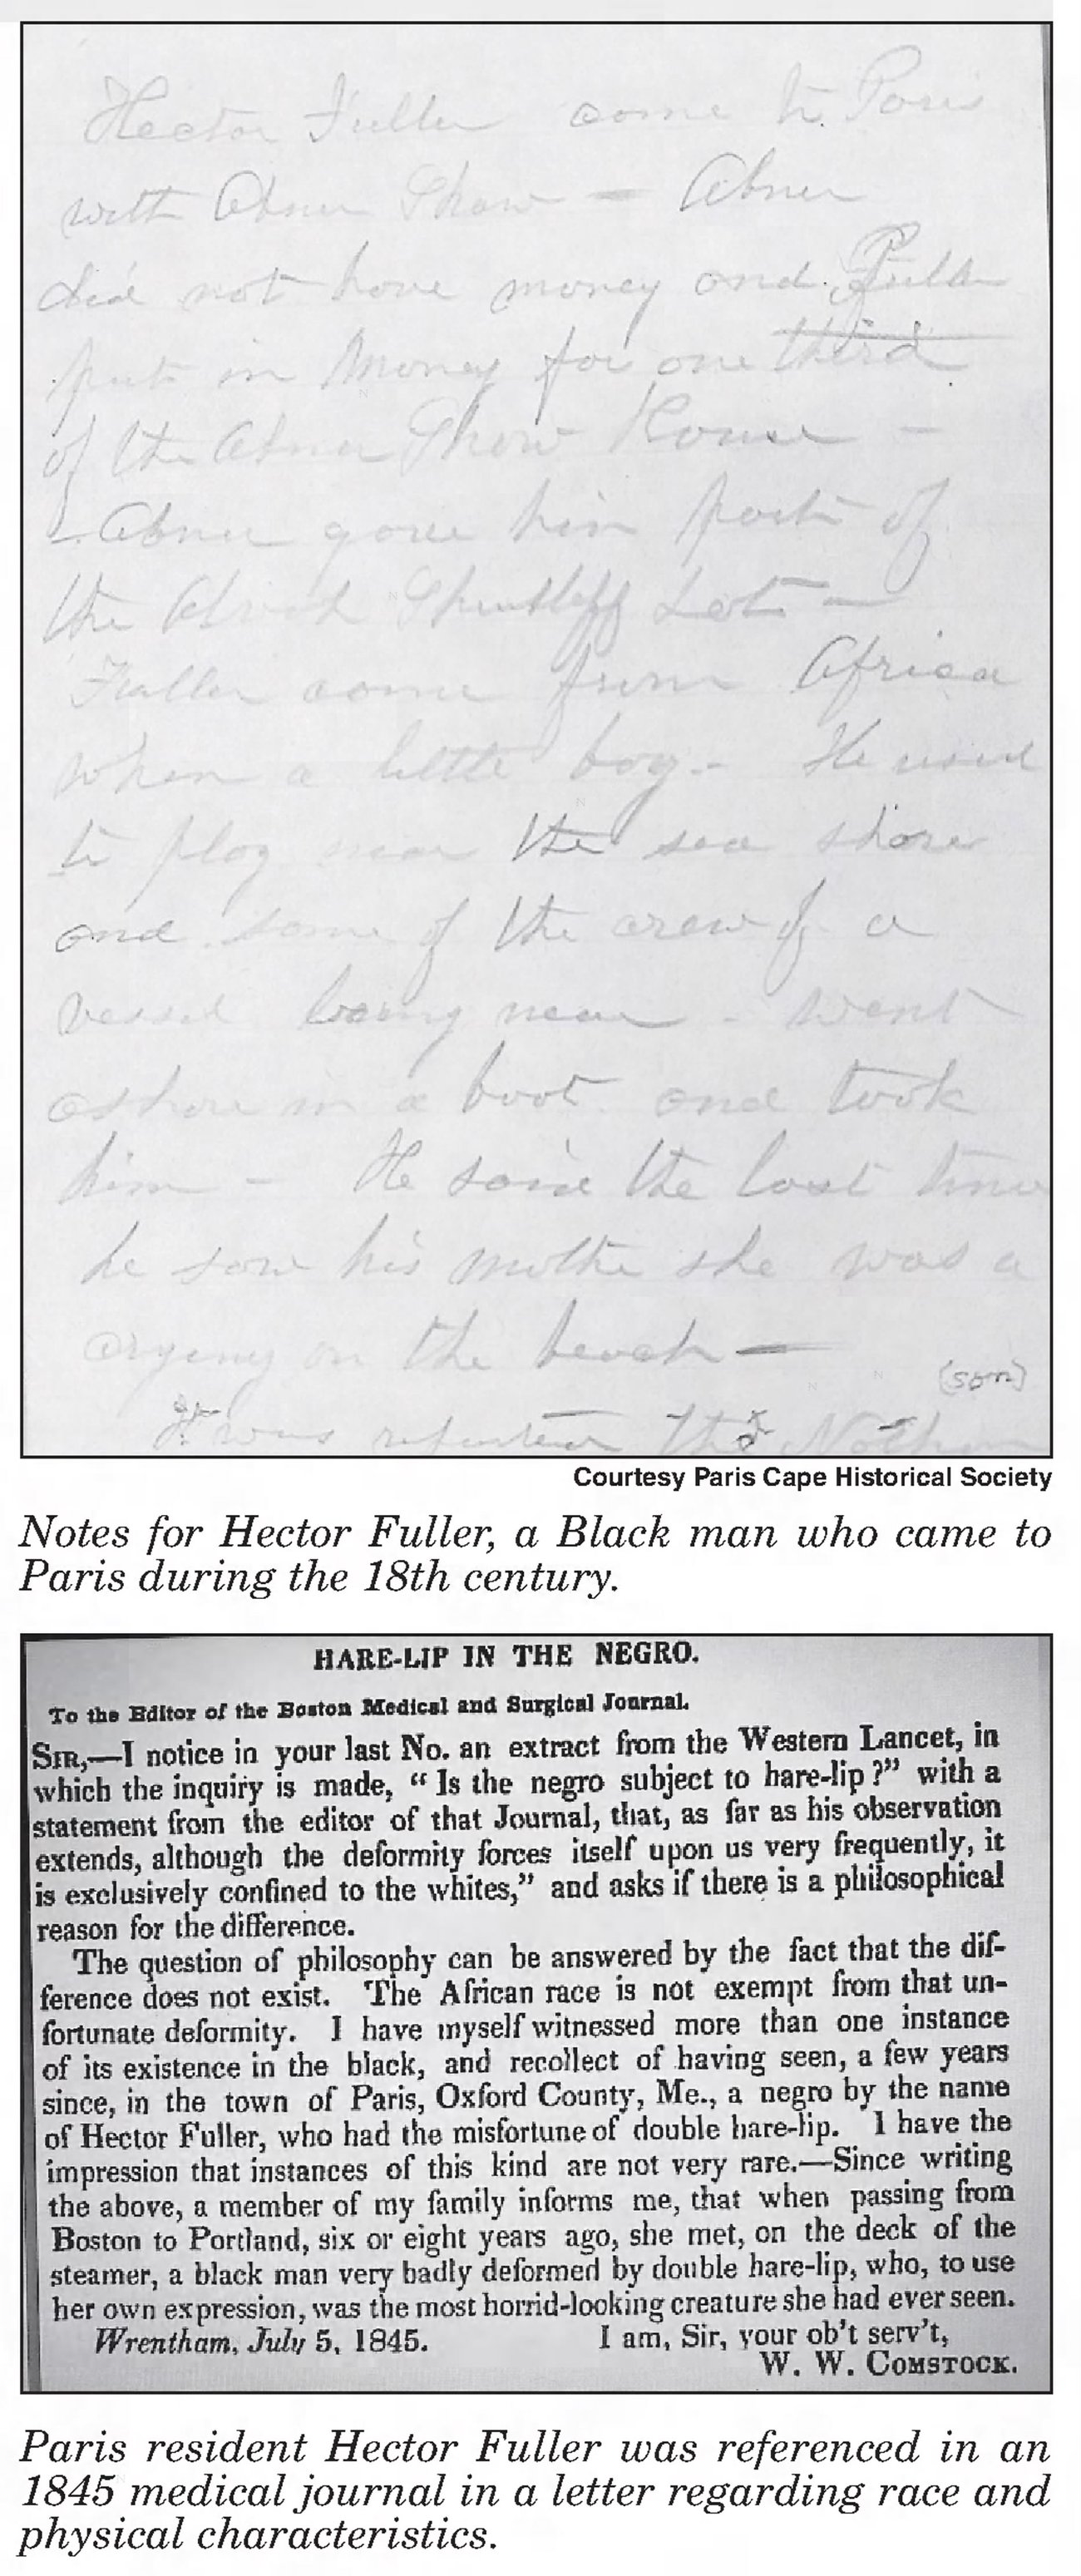 Hector Fuller come to Paris
with Abner Shaw – Abner
did not have money and Fuller
put in money for one third
of the Abner Shaw House –
Abner gave him part of
the Shurtleff Lot –
Fuller come from Africa
when a little boy – He used
to play near the sea shore
and some of the crew of a
vessel being near – went
ashore in a boat and took
him – He said the last time
he saw his mother she was a
crying on the beach –
(son)
It was reported
Courtesy Paris Cape Historical Society
Notes for Hector Fuller, a Black man who came to
Paris during the 18th century.
HARE-LIP IN THE NEGRO.
To the Editor of the Boston Medical and Surgical Journal.
SIR,—I notice in your last No. an extract from the Western Lancet, in
which the inquiry is made, “ Is the negro subject to hare-lip ?” with a
statement from the editor of that Journal, that, as far as his observation
extends, although the deformity forces itself upon us very frequently, it
is exclusively confined to the whites,” and asks if there is a philosophical
reason for the difference.
The question of philosophy can be answered by the fact that the dif-
ference does not exist. The African race is not exempt from that un-
fortunate deformity. I have myself witnessed more than one instance
of its existence in the black, and recollect of having seen, a few years
since, in the town of Paris, Oxford County, Me., a negro by the name
of Hector Fuller, who had the misfortune of double hare-lip. I have the
impression that instances of this kind are not very rare.—Since writing
the above, a member of my family informs me, that when passing from
Boston to Portland, six or eight years ago, she met, on the deck of the
steamer, a black man very badly deformed by double hare-lip, who, to use
her own expression, was the most horrid-looking creature she had ever seen.
Wrentham, July 5, 1845. I am, Sir, your ob’t serv’t,
W. W. COMSTOCK.
Paris resident Hector Fuller was referenced in an
1845 medical journal in a letter regarding race and
physical characteristics.